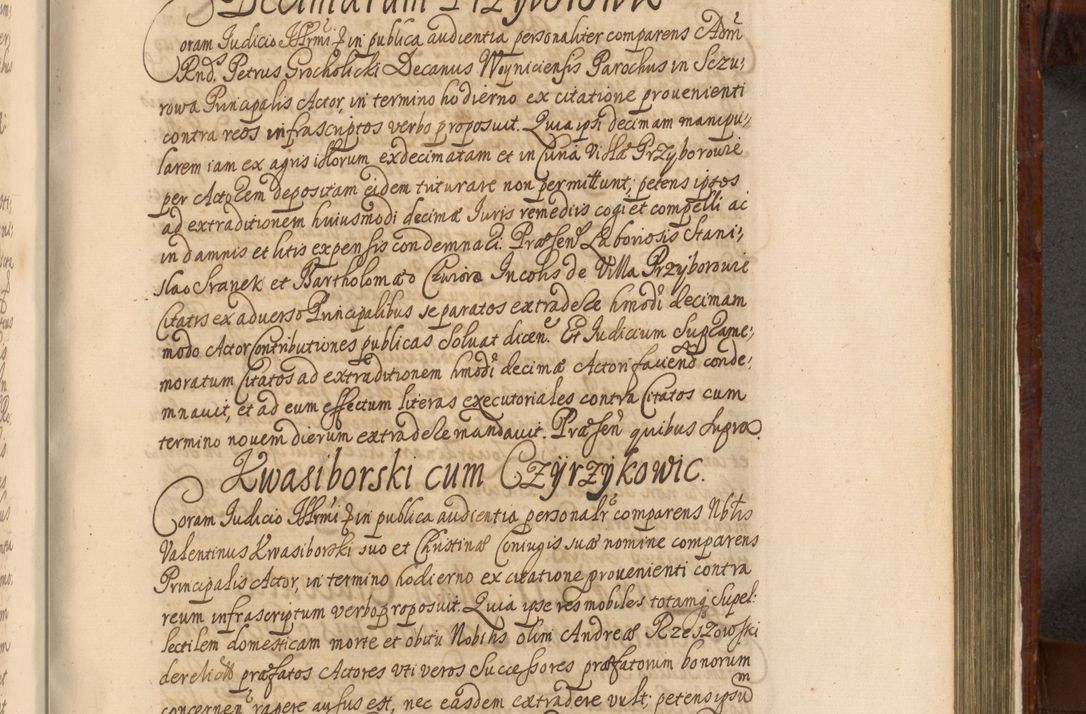 Decimarum Przyborowic
Coram Judicio Illrmi D in publica audientia personaliter comparens Adm
Rnds Petrus Grocholicki Decanus Woyniciensis Parochus in Sczu:
rowa Principalis Actor, in termino hodierno ex citatione provenienti
contra reos infrascriptos verbo proposuit. Quia ipsi decimam manipu:
larem iam ex agris illorum exdecimatam et in Curia Villa Przyborowie
per Actorem depositam eidem triturare non permittunt, petens iptos
ad extraditionem huiusmodi decimæ Juris remediis cogi et compelli ac
in damnis et litis expensis condemnari. Præsen Laboriosis Stani:
slao Franek et Bartholomæo Incolis de Villa Przyborowie
Citatis ex adverso Principalibus separatos extradere hmodi decimam
modo Actor Contributiones publicas Solvat dicen. Et Judicium Supra me:
moratum Citatos ad extraditionem hmodi decimæ Actori faciend conde:
mnavit, et ad eum effectum literas executoriales contra Citatos cum
termino novem dierum extradere mandavit. Præsen quibus Supra.
Kwasiborski cum Czÿrzÿkowic.
Coram Judicio Illrmi D in publica audientia personalr comparens Nblis
Valentinus Kwasiborski suo et Christinæ Coniugis suæ nomine comparens
Principalis Actor, in termino hodierno ex citatione provenienti contra
reum infrascriptum verbo proposuit. Quia ipse res mobiles totamq Supel:
lectilem domesticam morte et obitu Nobilis olim Andreæ Rzeszowski
derelicto præfatos Actores uti veros Successores præfatorum bonorum
concernen rapere ausus est, nec easdem extradere vult: petens ipsum